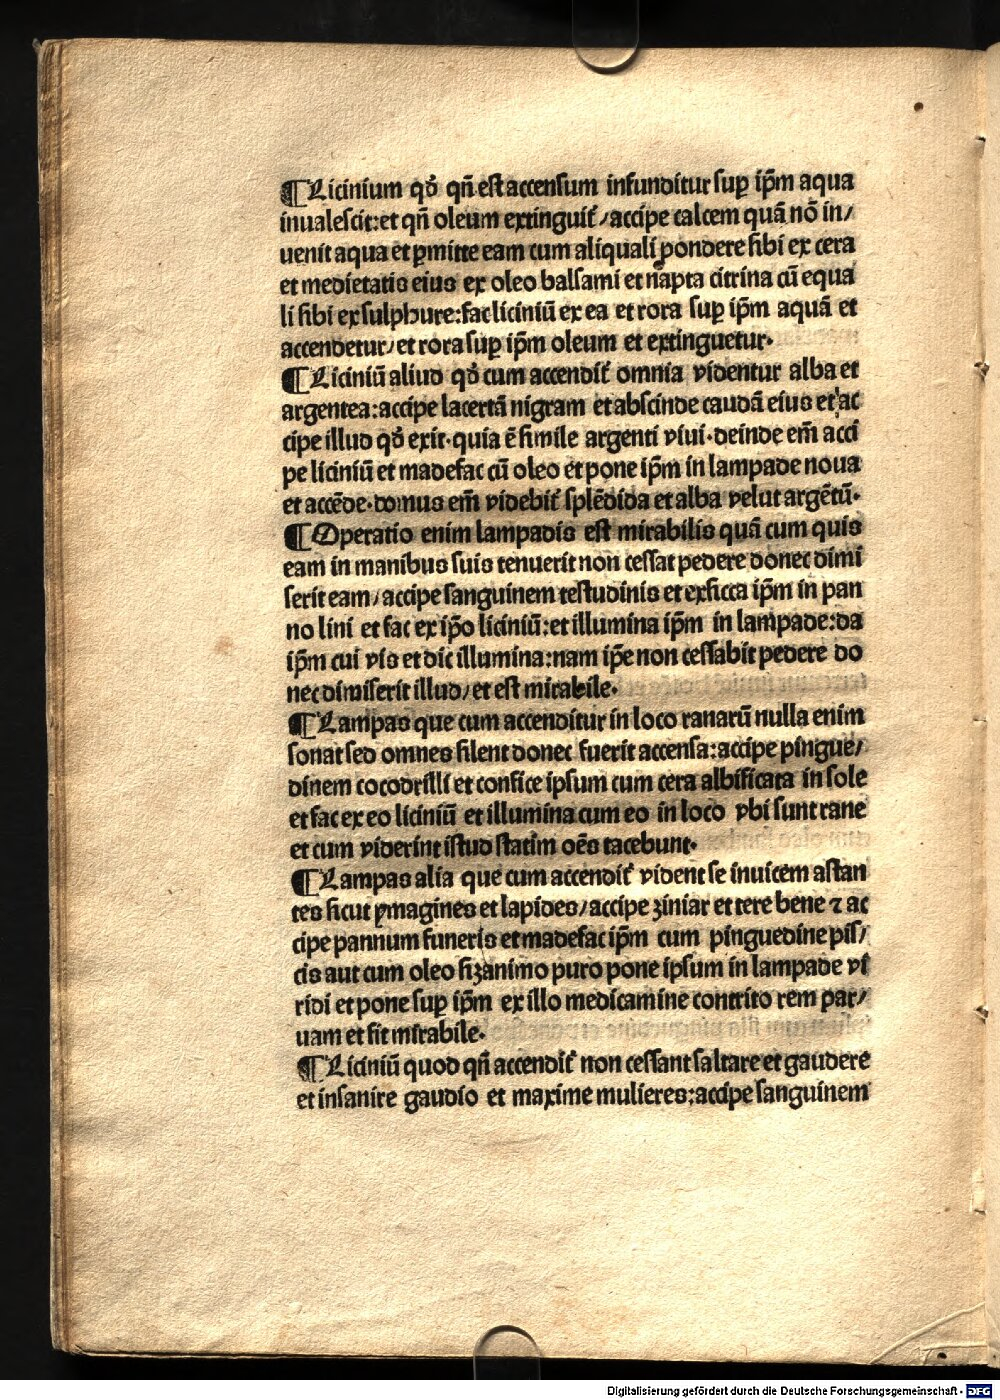 ¶Licinium qđ qñ est accensum infunditur suꝑ ip̄m aqua
inualescit:et qñ oleum extinguit̃/accipe calcem quã nõ in/
uenit aqua et ꝑmitte eam cum aliquali pondere sibi ex cera
et medietatis eius ex oleo balsami et napta citrina cũ equa
li sibi ex sulphure:fac liciniũ ex ea et rora suꝑ ip̄m aquã et
accendetur/et rora suꝑ ip̄m oleum et extinguetur.
¶Liciniũ aliud qđ cum accendit̃ omnia videntur alba et
argentea:accipe lacertã nigram et abscinde caudã eius et ac
cipe illud qđ exit.quia ẽ simile argenti viui.deinde em̃ acci
pe liciniũ et madefac cũ oleo et pone ip̄m in lampade noua
et accẽde.domus em̃ videbit̃ splẽdida et alba velut argẽtũ.
¶Operatio enim lampadis est mirabilis quã cum quis
eam in manibus suis tenuerit non cessat pedere donec dimi
serit eam/accipe sanguinem testudinis et exsicca ip̄m in pan
no lini et fac ex ip̄o liciniũ:et illumina ip̄m in lampade:da
ip̄m cui vis et dic illumina:nam ip̄e non cessabit pedere do
nec dimiserit illud/et est mirabile.
¶Lampas que cum accenditur in loco ranarũ nulla enim
sonat sed omnes silent donec fuerit accensa:accipe pingue/
dinem cocodrilli et confice ipsum cum cera albificata in sole
et fac ex eo liciniũ et illumina cum eo in loco vbi sunt rane
et cum viderint istud statim oẽs tacebunt.
¶Lampas alia que cum accendit̃ vident se inuicem astan
tes sicut ymagines et lapides/accipe ziniar et tere bene ⁊ ac
cipe pannum funeris et madefac ip̄m cum pinguedine pis/
cis aut cum oleo sizanimo puro pone ipsum in lampade vi
ridi et pone suꝑ ip̄m ex illo medicamine contrito rem par/
uam et fit mirabile.
¶Liciniũ quod qñ accendit̃ non cessant saltare et gaudere
et insanire gaudio et maxime mulieres:accipe sanguinem
Digitalisierung gefördert durch die Deutsche Forschungsgemeinschaft - DFG